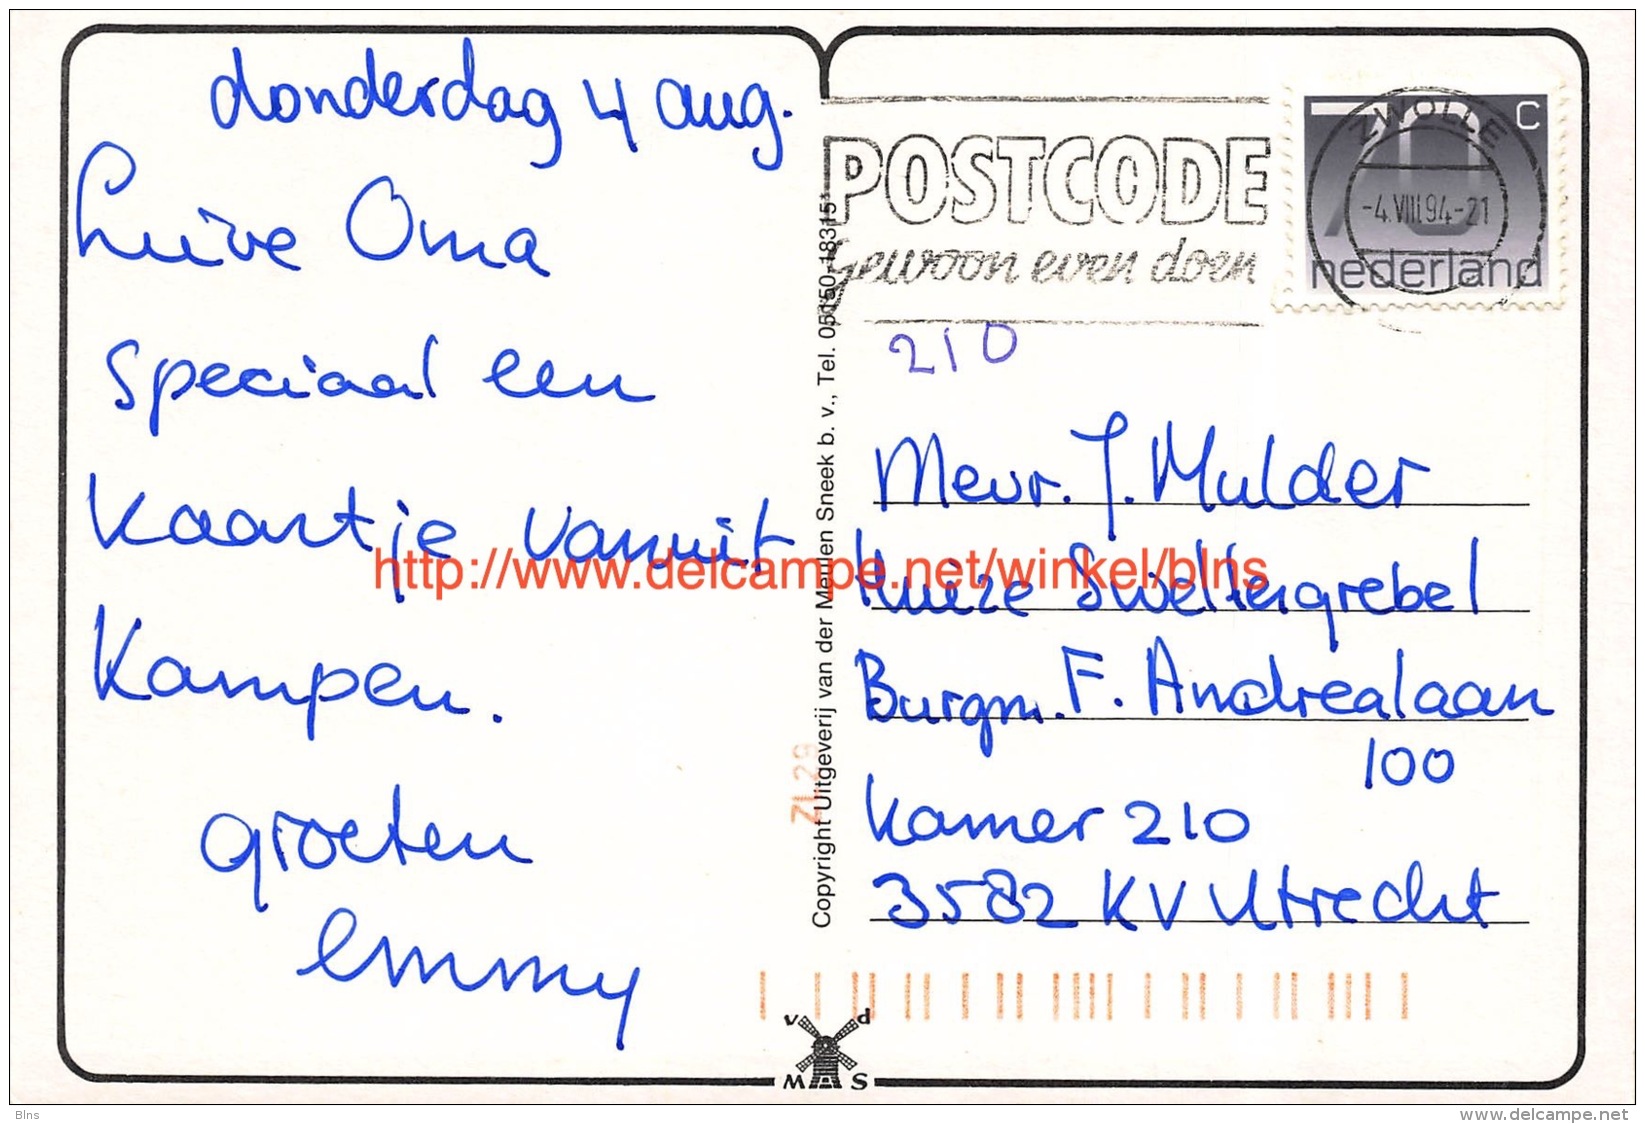 donderdag 4 aug.
Lieve Oma
speciaal een
kaartje vanuit
Kampen.
groeten
emmy
POSTCODE
Gewoon even doen
ZWOLLE
-4.VIII.94-21
70 C
nederland
210
Mevr. J. Mulder
Huize Swellengrebel
Burgm. F. Andrealaan
100
Kamer 210
3582 KV Utrecht
Copyright Uitgeverij van der Meulen Sneek b. v., Tel. 05150-18315*
ZL29
http://www.delcampe.net/winkel/blns
v d
M S
Blns
www.delcampe.net